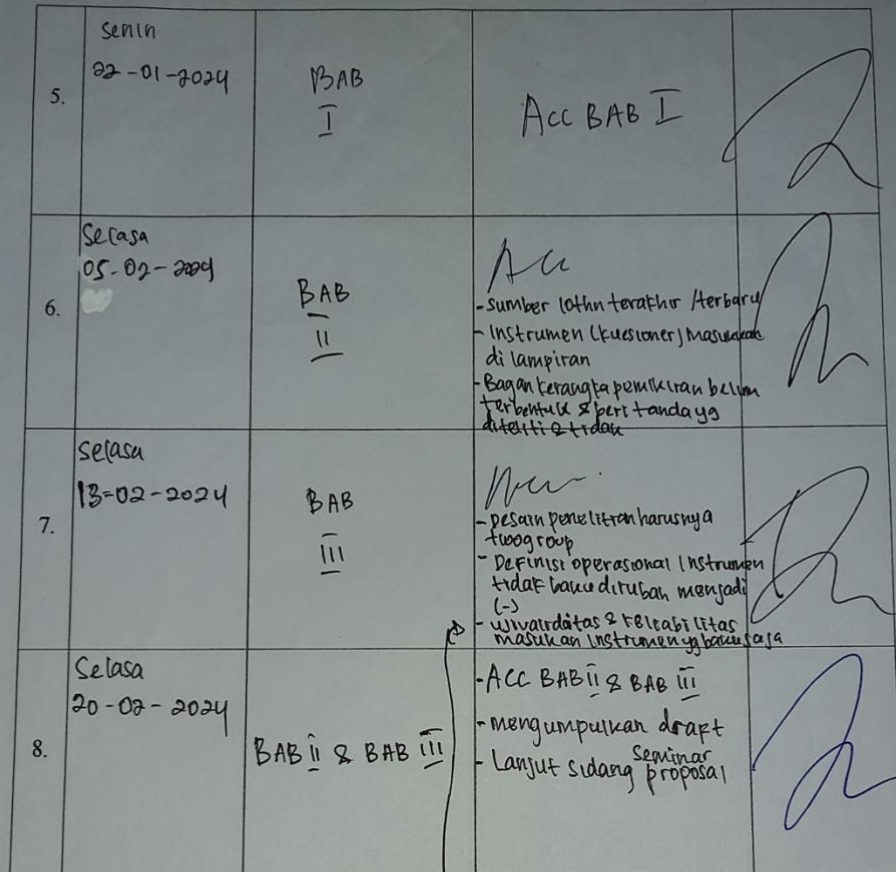 5.
Senin
22-01-2024
BAB
I
ACC BAB I
6.
Selasa
05-02-2024
BAB
II
Acc
- sumber 10thn terakhir /terbaru
- Instrumen (kuesioner) Masukkan
di lampiran
- Bagan kerangka pemikiran belum
terbentuk & beri tanda yg
diteliti & tidak
7.
Selasa
13-02-2024
BAB
III
- Desain penelitian harusnya
twogroup
- Definisi operasional Instrumen
tidak baku dirubah menjadi
(-)
- & reliabilitas
masukan Instrumen yg baku saja
8.
Selasa
20-02-2024
BAB II & BAB III
- ACC BAB II & BAB III
- mengumpulkan draft
- Lanjut sidang seminar
proposal